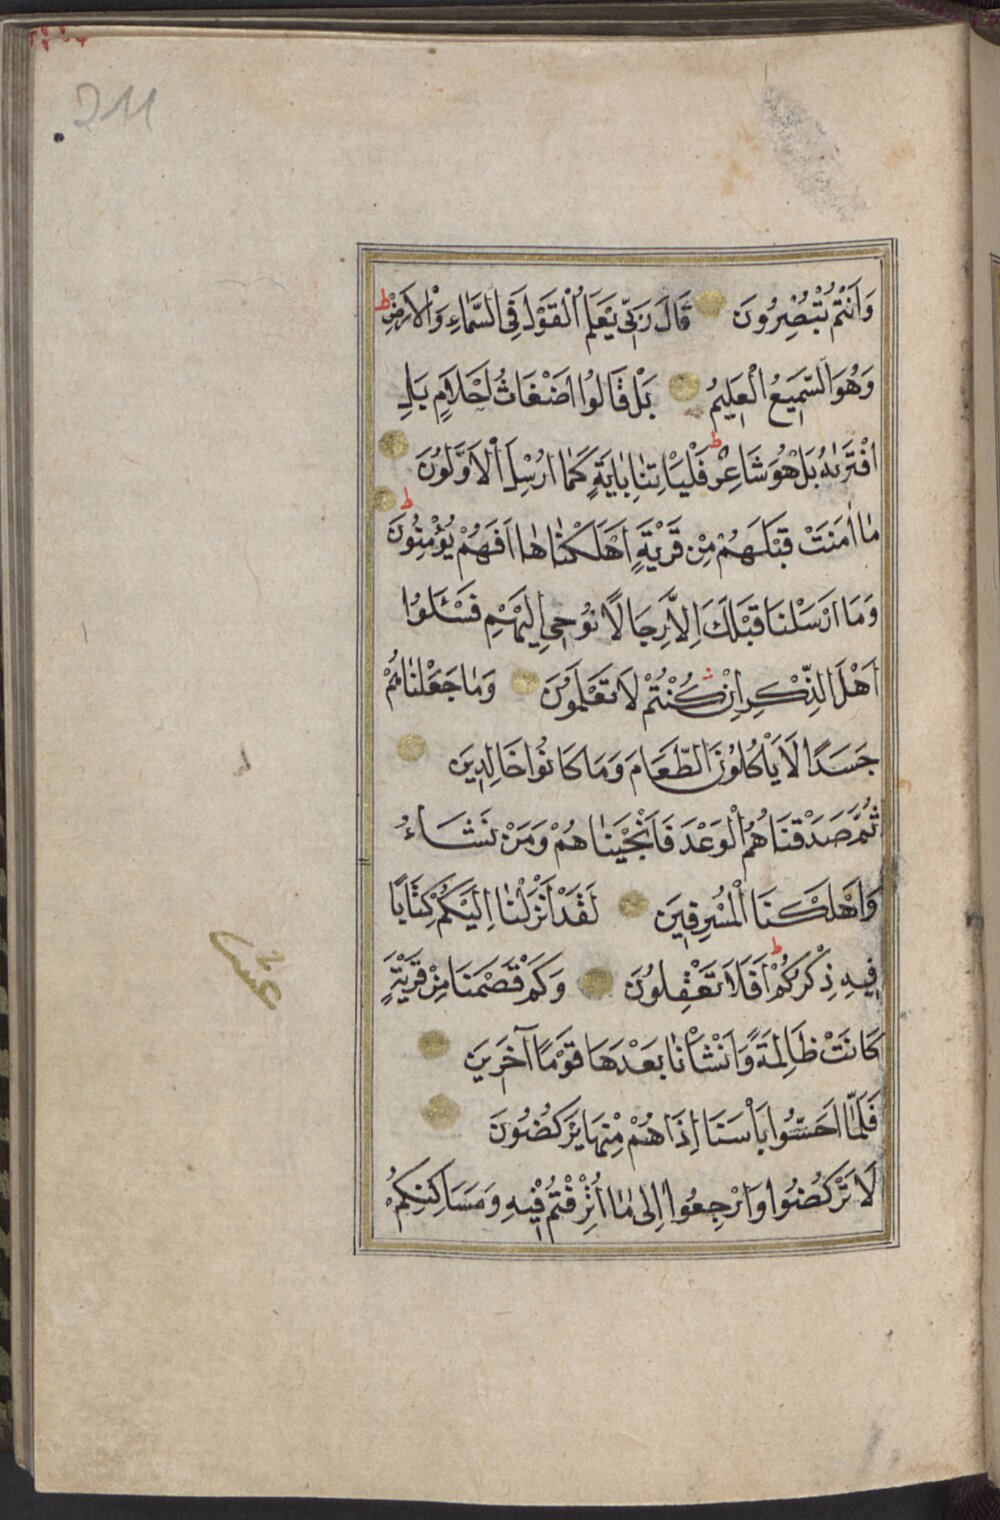 211
وَاَنْتُمْ تُبْصِرُونَ قَالَ رَبّ۪ي يَعْلَمُ الْقَوْلَ فِي السَّمَاءِ وَالْاَرْضِ ط
وَهُوَ السَّمِيعُ الْعَلِيمُ بَلْ قَالُوا اَضْغَاثُ اَحْلَامٍ بَلِ
افْتَرٰيهُ بَلْ هُوَ شَاعِرٌ ط فَلْيَاْتِنَا بِاٰيَةٍ كَمَا اُرْسِلَ الْاَوَّلُونَ
مَا اٰمَنَتْ قَبْلَهُمْ مِنْ قَرْيَةٍ اَهْلَكْنَاهَا اَفَهُمْ يُؤْمِنُونَ ط
وَمَا اَرْسَلْنَا قَبْلَكَ اِلَّا رِجَالًا نُوحِي اِلَيْهِمْ فَسْـَٔلُوا
اَهْلَ الذِّكْرِ اِنْ كُنْتُمْ لَا تَعْلَمُونَ وَمَا جَعَلْنَاهُمْ
جَسَدًا لَا يَاْكُلُونَ الطَّعَامَ وَمَا كَانُوا خَالِدِينَ
ثُمَّ صَدَقْنَاهُمُ الْوَعْدَ فَاَنْجَيْنَاهُمْ وَمَنْ نَشَاءُ
وَاَهْلَكْنَا الْمُسْرِفِينَ لَقَدْ اَنْزَلْنَا اِلَيْكُمْ كِتَابًا
فِيهِ ذِكْرُكُمْ ط اَفَلَا تَعْقِلُونَ وَكَمْ قَصَمْنَا مِنْ قَرْيَةٍ
كَانَتْ ظَالِمَةً وَاَنْشَاْنَا بَعْدَهَا قَوْمًا آخَرِينَ
فَلَمَّا اَحَسُّوا بَاْسَنَا اِذَا هُمْ مِنْهَا يَرْكُضُونَ
لَا تَرْكُضُوا وَارْجِعُوا اِلٰى مَا اُتْرِفْتُمْ فِيهِ وَمَسَاكِنِكُمْ